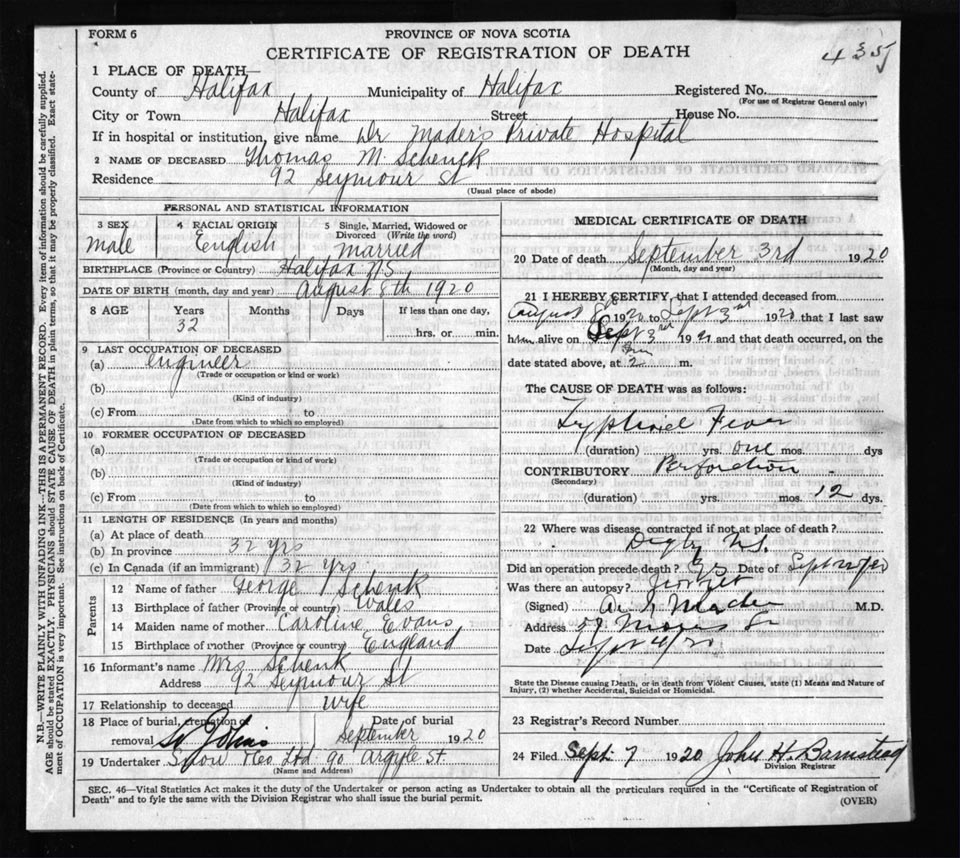 FORM 6
PROVINCE OF NOVA SCOTIA
CERTIFICATE OF REGISTRATION OF DEATH
435
1 PLACE OF DEATH—
County of Halifax Municipality of Halifax Registered No.
(For use of Registrar General only)
City or Town Halifax Street House No.
If in hospital or institution, give name Dr Mader's Private Hospital
2 NAME OF DECEASED Thomas M. Schenck
Residence 92 Seymour St
(Usual place of abode)
PERSONAL AND STATISTICAL INFORMATION
3 SEX 4 RACIAL ORIGIN 5 Single, Married, Widowed or
Divorced (Write the word)
Male English Married
BIRTHPLACE (Province or Country) Halifax N.S.
DATE OF BIRTH (month, day and year) August 8th 1920
8 AGE Years Months Days If less than one day,
32
hrs. or min.
9 LAST OCCUPATION OF DECEASED
(a) Engineer
(Trade or occupation or kind or work)
(b)
(Kind of industry)
(c) From to
(Date from which to which so employed)
10 FORMER OCCUPATION OF DECEASED
(a)
(Trade or occupation or kind of work)
(b)
(Kind of industry)
(c) From to
(Date from which to which so employed)
11 LENGTH OF RESIDENCE (In years and months)
(a) At place of death
(b) In province 32 yrs
(c) In Canada (if an immigrant) 32 yrs
Parents
12 Name of father George Schenk
13 Birthplace of father (Province or country) Wales
14 Maiden name of mother Caroline Evans
15 Birthplace of mother (Province or country) England
16 Informant's name Mrs Schenk
Address 92 Seymour St
17 Relationship to deceased wife
18 Place of burial, cremation or Date of burial
removal St Johns September 1920
19 Undertaker Snow &Co Ltd 90 Argyle St.
(Name and Address)
MEDICAL CERTIFICATE OF DEATH
20 Date of death September 3rd 1920
(Month, day and year)
21 I HEREBY CERTIFY, that I attended deceased from
August 8th 1920 to Sept 3rd 1920 that I last saw
him alive on Sept 3rd 19 and that death occurred, on the
date stated above, at 2 m.
The CAUSE OF DEATH was as follows:
Typhoid Fever
(duration) yrs. one mos. dys
CONTRIBUTORY Perforation
(Secondary)
(duration) yrs. mos. 12 dys.
22 Where was disease contracted if not at place of death?
Digby N.S.
Did an operation precede death? Yes Date of Sept
Was there an autopsy?
(Signed) M.D.
Address Morris St
Date Sept
State the Disease causing Death, or in death from Violent Causes, state (1) Means and Nature of
Injury, (2) whether Accidental, Suicidal or Homicidal.
23 Registrar's Record Number
24 Filed Sept 7 1920 John H. Barnstead
Division Registrar
SEC. 46—Vital Statistics Act makes it the duty of the Undertaker or person acting as Undertaker to obtain all the particulars required in the "Certificate of Registration of
Death" and to fyle the same with the Division Registrar who shall issue the burial permit.
(OVER)
N.B.—WRITE PLAINLY WITH UNFADING INK—THIS IS A PERMANENT RECORD. Every item of information should be carefully supplied.
AGE should be stated EXACTLY. PHYSICIANS should STATE CAUSE OF DEATH in plain terms, so that it may be properly classified. Exact state-
ment of OCCUPATION is very important. See instructions on back of Certificate.